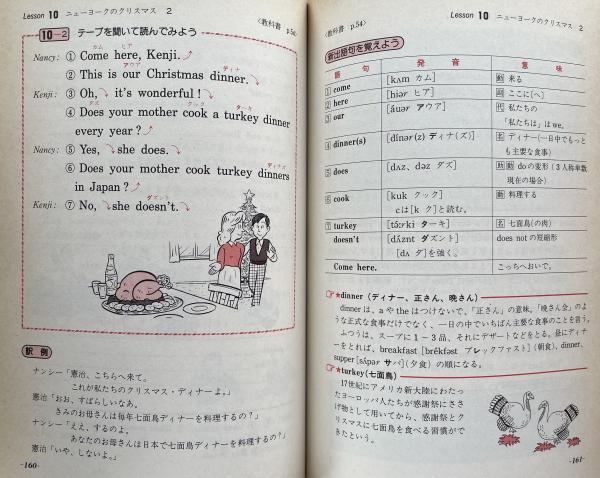 Lesson 10 ニューヨークのクリスマス 2
〈教科書 p.54〉
10-2 テープを聞いて読んでみよう
カム ヒア
Nancy: ① Come here, Kenji.
アウア ディナ
② This is our Christmas dinner.
Kenji: ③ Oh, it's wonderful!
ダズ クック ターキ
④ Does your mother cook a turkey dinner
every year?
Nancy: ⑤ Yes, she does.
ディナズ
⑥ Does your mother cook turkey dinners
in Japan?
ダズント
Kenji: ⑦ No, she doesn't.
訳例
ナンシー「憲治、こちらへ来て。
これが私たちのクリスマス・ディナーよ。」
憲治「おお、すばらしいなあ。
きみのお母さんは毎年七面鳥ディナーを料理するの？」
ナンシー「ええ、するのよ。
あなたのお母さんは日本で七面鳥ディナーを料理するの？」
憲治「いや、しないよ。」
-160-
Lesson 10 ニューヨークのクリスマス 2
〈教科書 p.54〉
新出語句を覚えよう
語句 発音 意味
1 come [kʌm カム] 動 来る
2 here [hiər ヒア] 副 ここに[へ]
3 our [áuər アウア] 代 私たちの
「私たちは」はwe。
4 dinner(s) [dínər(z) ディナ(ズ)] 名 ディナー(一日中でもっと
も主要な食事)
5 does [dʌz, dəz ダズ] 助動 doの変形 (3人称単数
現在の場合)
6 cook [kuk クック] 動 料理する
cは[k ク]と読む。
7 turkey [tə́ːrki ターキ] 名 七面鳥(の肉)
doesn't [dʌ́znt ダズント] does notの短縮形
[dʌ ダ]を強く。
Come here. こっちへおいで。
★dinner (ディナー、正さん、晩さん)
dinner は、a や the はつけないで、「正さん」の意味。「晩さん会」のよ
うな正式な食事だけでなく、一日の中でいちばん主要な食事のことを言う。
ふつうは、スープに1－3品、それにデザートなどをとる。昼にディナ
ーをとれば、breakfast [brékfəst ブレックファスト] (朝食)、dinner、
supper [sʌ́pər サパ] (夕食) の順になる。
★turkey(七面鳥)
17世紀にアメリカ新大陸にわたっ
たヨーロッパ人たちが感謝祭にささ
げ物として用いてから、感謝祭とク
リスマスに七面鳥を食べる習慣がで
きたという。
-161-